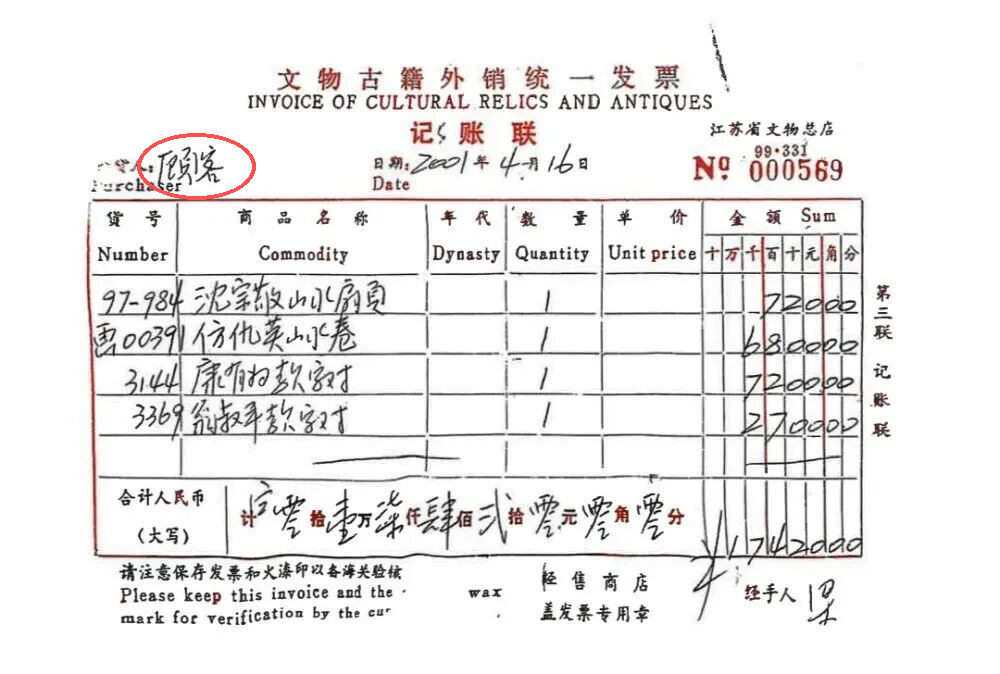 文物古籍外销统一发票
INVOICE OF CULTURAL RELICS AND ANTIQUES
记账联
江苏省文物总店
99·331
货人: 顾客
Purchaser
日期: 2001年4月16日
Date
№ 000569
货号 商品名称 年代 数量 单价 金额 Sum
Number Commodity Dynasty Quantity Unit price 十万千百十元角分
97-984 沈宗敬山水扇页 1 72000
画00391 仿仇英山水卷 1 680000
3144 康有为款字对 1 720000
3369 翁叔平款字对 1 270000
合计人民币
(大写)
计 零拾壹万柒仟肆佰贰拾零元零角零分
¥1742000
第三联 记账联
请注意保存发票和火漆印以备海关验核
Please keep this invoice and the wax
mark for verification by the cus
经售商店
盖发票专用章
经手人